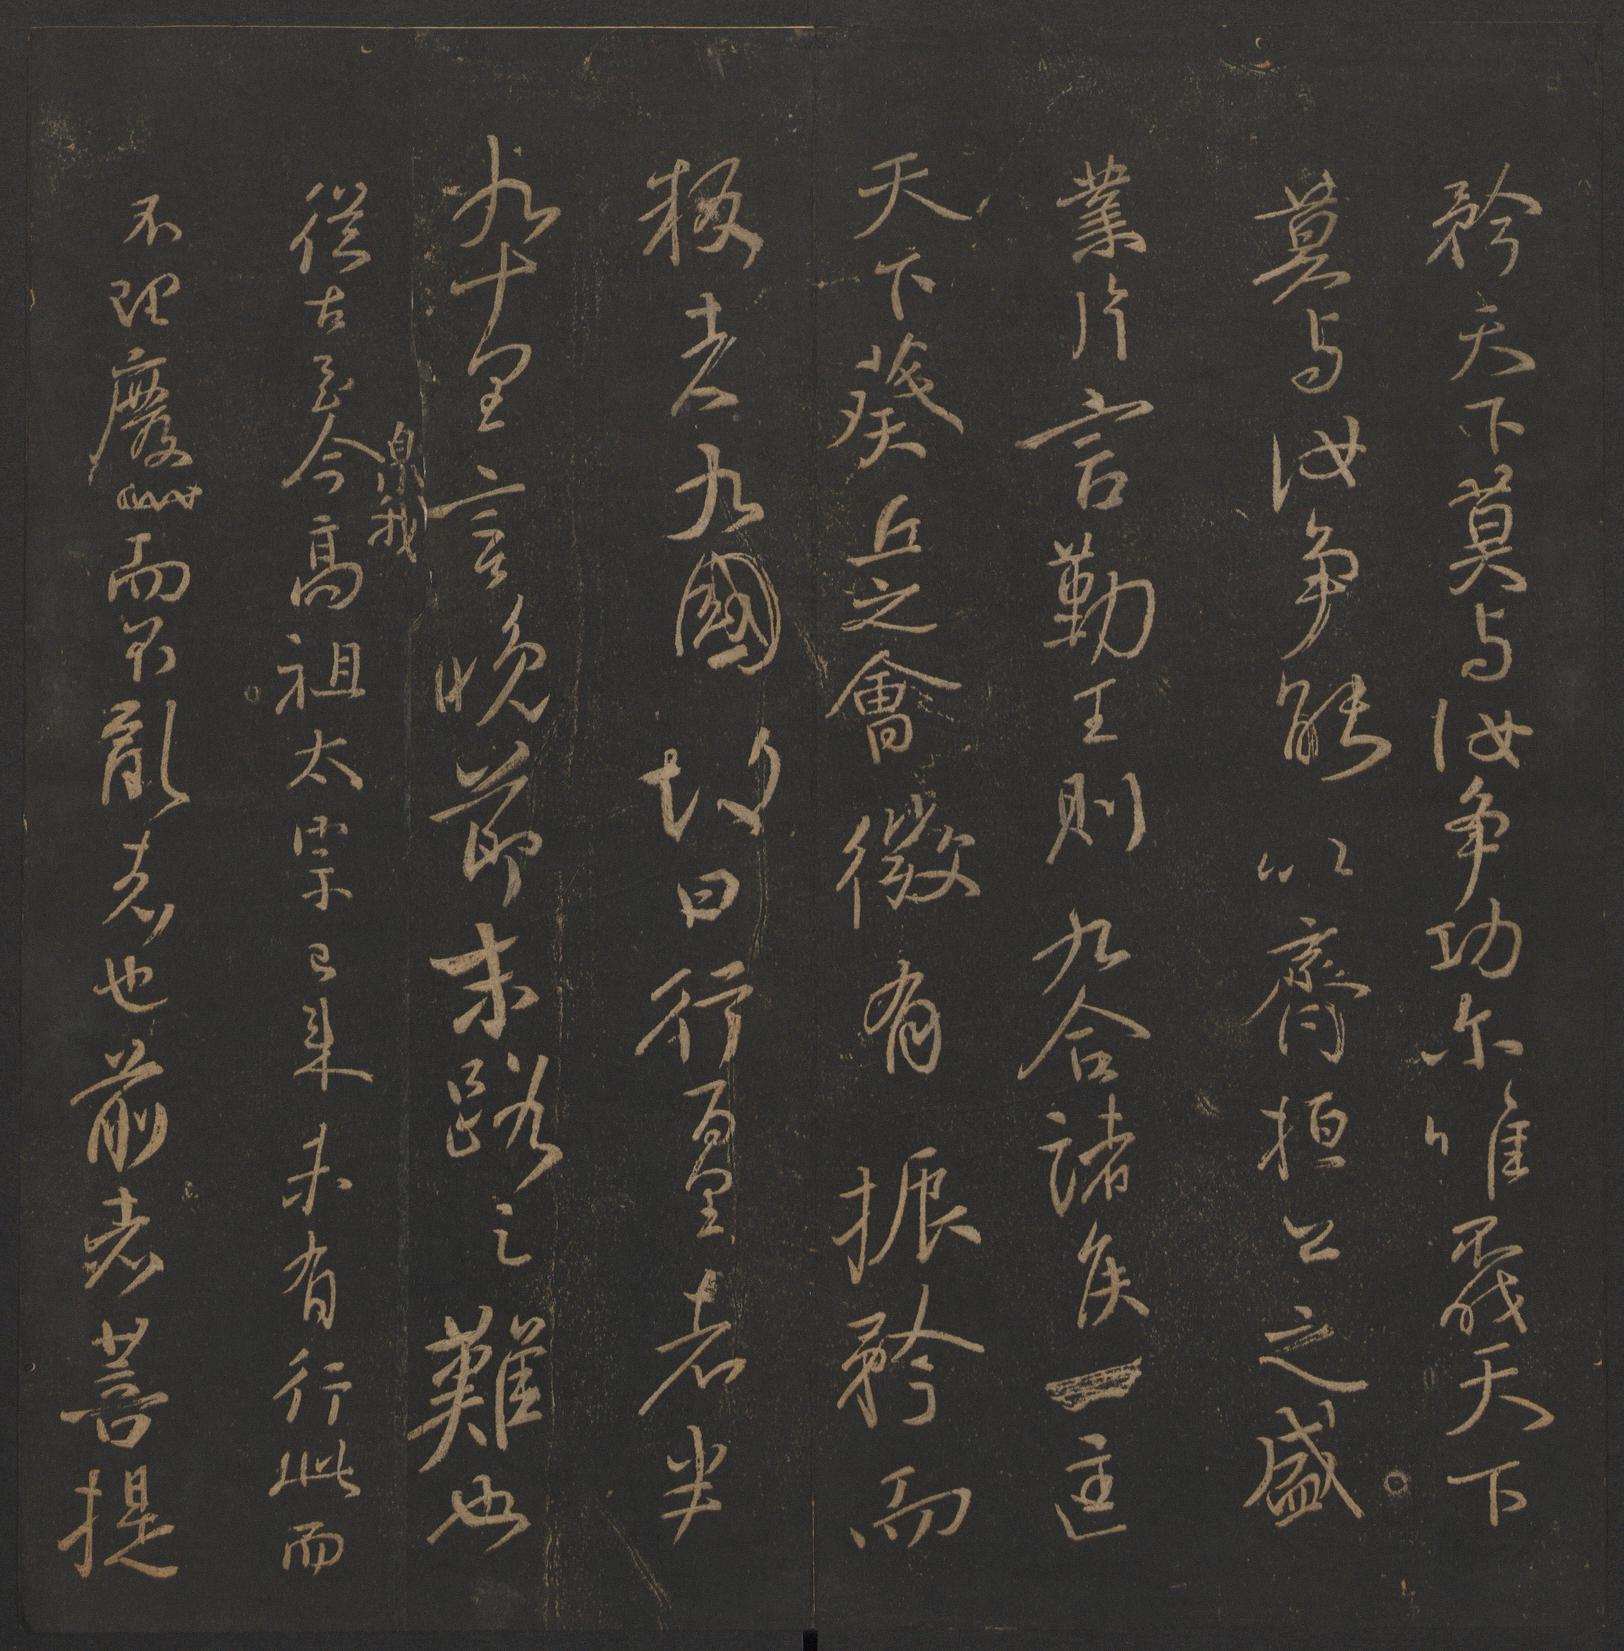 矜天下莫与汝争功尔唯不伐天下
莫与汝争能以齊桓公之盛
業片言勤王則九合諸侯一匡
天下葵丘之會微有振矜而
叛者九國故曰行百里者半
九十里言晚節末路之難也
從古至今泉我高祖太宗已来未有行此而
不理廢此而不亂者也前者菩提